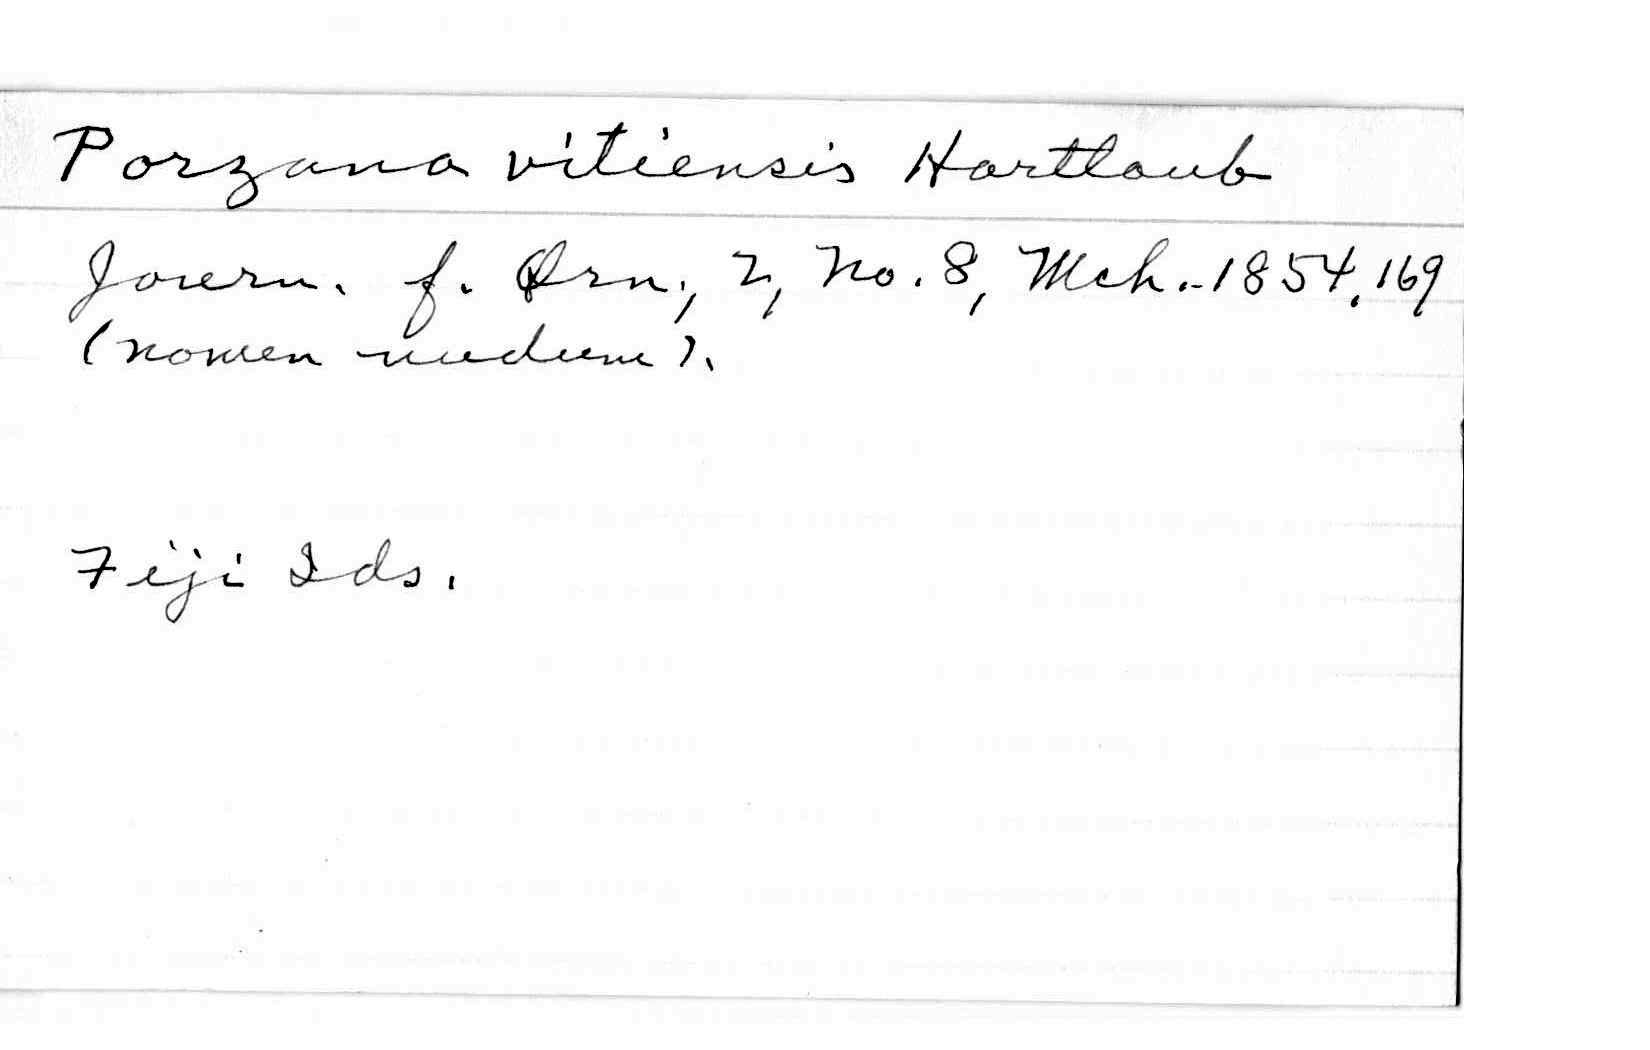 Porzana vitiensis Hartlaub
Journ. f. Orn., 2, No. 8, Mch. 1854, 169
(nomen nudum).
Fiji Ids.